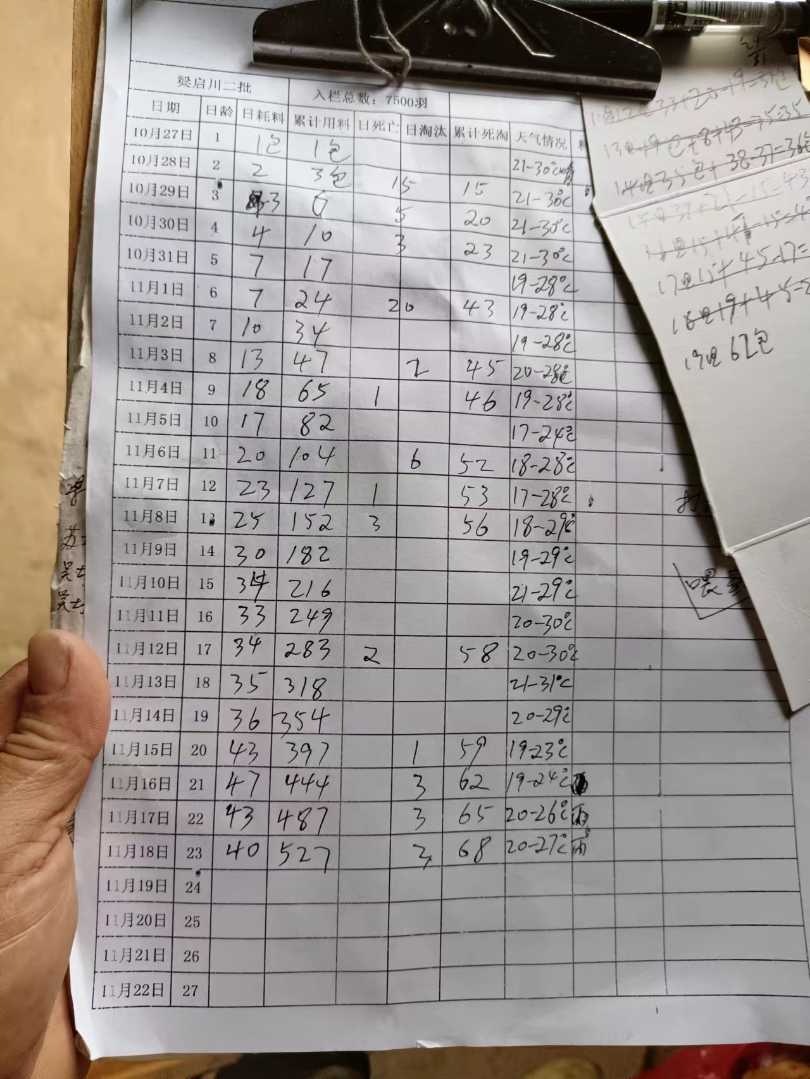 梁启川二批 入栏总数：7500羽
日期 日龄 日耗料 累计用料 日死亡 日淘汰 累计死淘 天气情况
10月27日 1 1包 1包
10月28日 2 2 3包 15 15 21-30℃
10月29日 3 3 6 5 20 21-30℃
10月30日 4 4 10 3 23 21-30℃
10月31日 5 7 17 19-28℃
11月1日 6 7 24 20 43 19-28℃
11月2日 7 10 34 19-28℃
11月3日 8 13 47 2 45 20-28℃
11月4日 9 18 65 1 46 19-28℃
11月5日 10 17 82 17-24℃
11月6日 11 20 104 6 52 18-28℃
11月7日 12 23 127 1 53 17-28℃
11月8日 13 25 152 3 56 18-29℃
11月9日 14 30 182 19-29℃
11月10日 15 34 216 21-29℃
11月11日 16 33 249 20-30℃
11月12日 17 34 283 2 58 20-30℃
11月13日 18 35 318 21-31℃
11月14日 19 36 354 20-29℃
11月15日 20 43 397 1 59 19-23℃
11月16日 21 47 444 3 62 19-24℃
11月17日 22 43 487 3 65 20-26℃雨
11月18日 23 40 527 3 68 20-27℃雨
11月19日 24
11月20日 25
11月21日 26
11月22日 27
19日62包